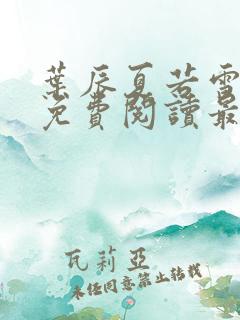 葉辰夏若雪
免費閱讀最
瓦莉亞
未經同意禁止轉載